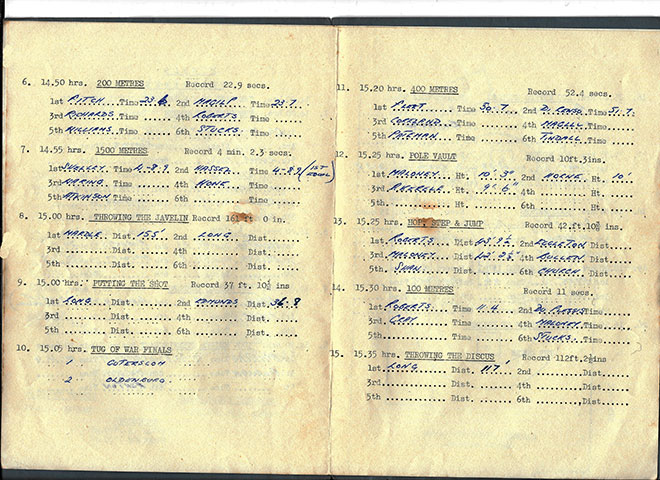 6. 14.50 hrs. 200 METRES Record 22.9 secs.
1st FITCH Time 23.6 2nd MAGILP Time 23.7
3rd RONALDS Time 4th ROBERTS Time
5th WILLIAMS Time 6th STUCKS Time
7. 14.55 hrs. 1500 METRES Record 4 min. 2.3 secs.
1st SHELLEY Time 4-8.9 2nd Time 4-89
3rd WARING Time 4th HONE Time
5th ATKINSON Time 6th Time
8. 15.00 hrs. THROWING THE JAVELIN Record 161 ft 0 in.
1st HARDLE Dist 155' 2nd LONG Dist
3rd Dist 4th Dist
5th Dist 6th Dist
9. 15.00 hrs. PUTTING THE SHOT Record 37 ft. 10½ ins
1st LONG Dist. 2nd EDMUNDS Dist. 36 8
3rd Dist. 4th Dist.
5th Dist. 6th Dist.
10. 15.05 hrs. TUG OF WAR FINALS
1 GUTERSLOH
2 OLDENBURG
11. 15.20 hrs. 400 METRES Record 52.4 secs.
1st Time 50.7 2nd Time 51.7
3rd COPELEND Time 4th Time
5th BATEMAN Time 6th TINDALL Time
12. 15.25 hrs. POLE VAULT Record 10ft.3ins.
1st MALONEY Ht. 10' 3" 2nd ROCHE Ht. 10'
3rd Ht. 9' 6" 4th Ht.
5th Ht. 6th Ht.
13. 15.25 hrs. HOP, STEP & JUMP Record 42ft.10½ ins
1st ROBERTS Dist 2nd EGGLETON Dist
3rd MALONEY Dist 4th BULLEN Dist
5th Dist 6th CHURCH Dist
14. 15.30 hrs. 100 METRES Record 11 secs.
1st ROBERTS Time 11.4 2nd Time
3rd Time 4th MALONEY Time
5th Time 6th STUCKS Time
15. 15.35 hrs. THROWING THE DISCUS Record 112ft.2½ins
1st LONG Dist. 117' 2nd Dist
3rd Dist. 4th Dist.
5th Dist. 6th Dist